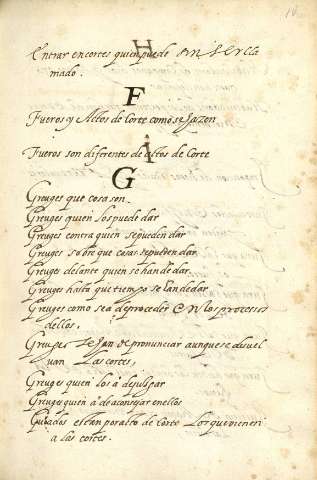 10
Entrar en cortes quien puede sin ser lla
mado.
F
Fueros y Actos de Corte como se hazen
Fueros son diferentes de actos de Corte
G
Greuges que cosa son.
Greuges quien los puede dar
Greuges contra quien se pueden dar
Greuges sobre que cosas se pueden dar
Greuge delante quien se han de dar.
Greuges hasta que tiempo se han de dar
Greuges como se a de proceder en los processos
dellos,
Greuges se han de pronunciar aunque se disuel
uan las cortes,
Greuges quien los à de juzgar
Greuges quien à de aconsejar en ellos
Guiados estan por alto de Corte los que vienen
a las cortes.